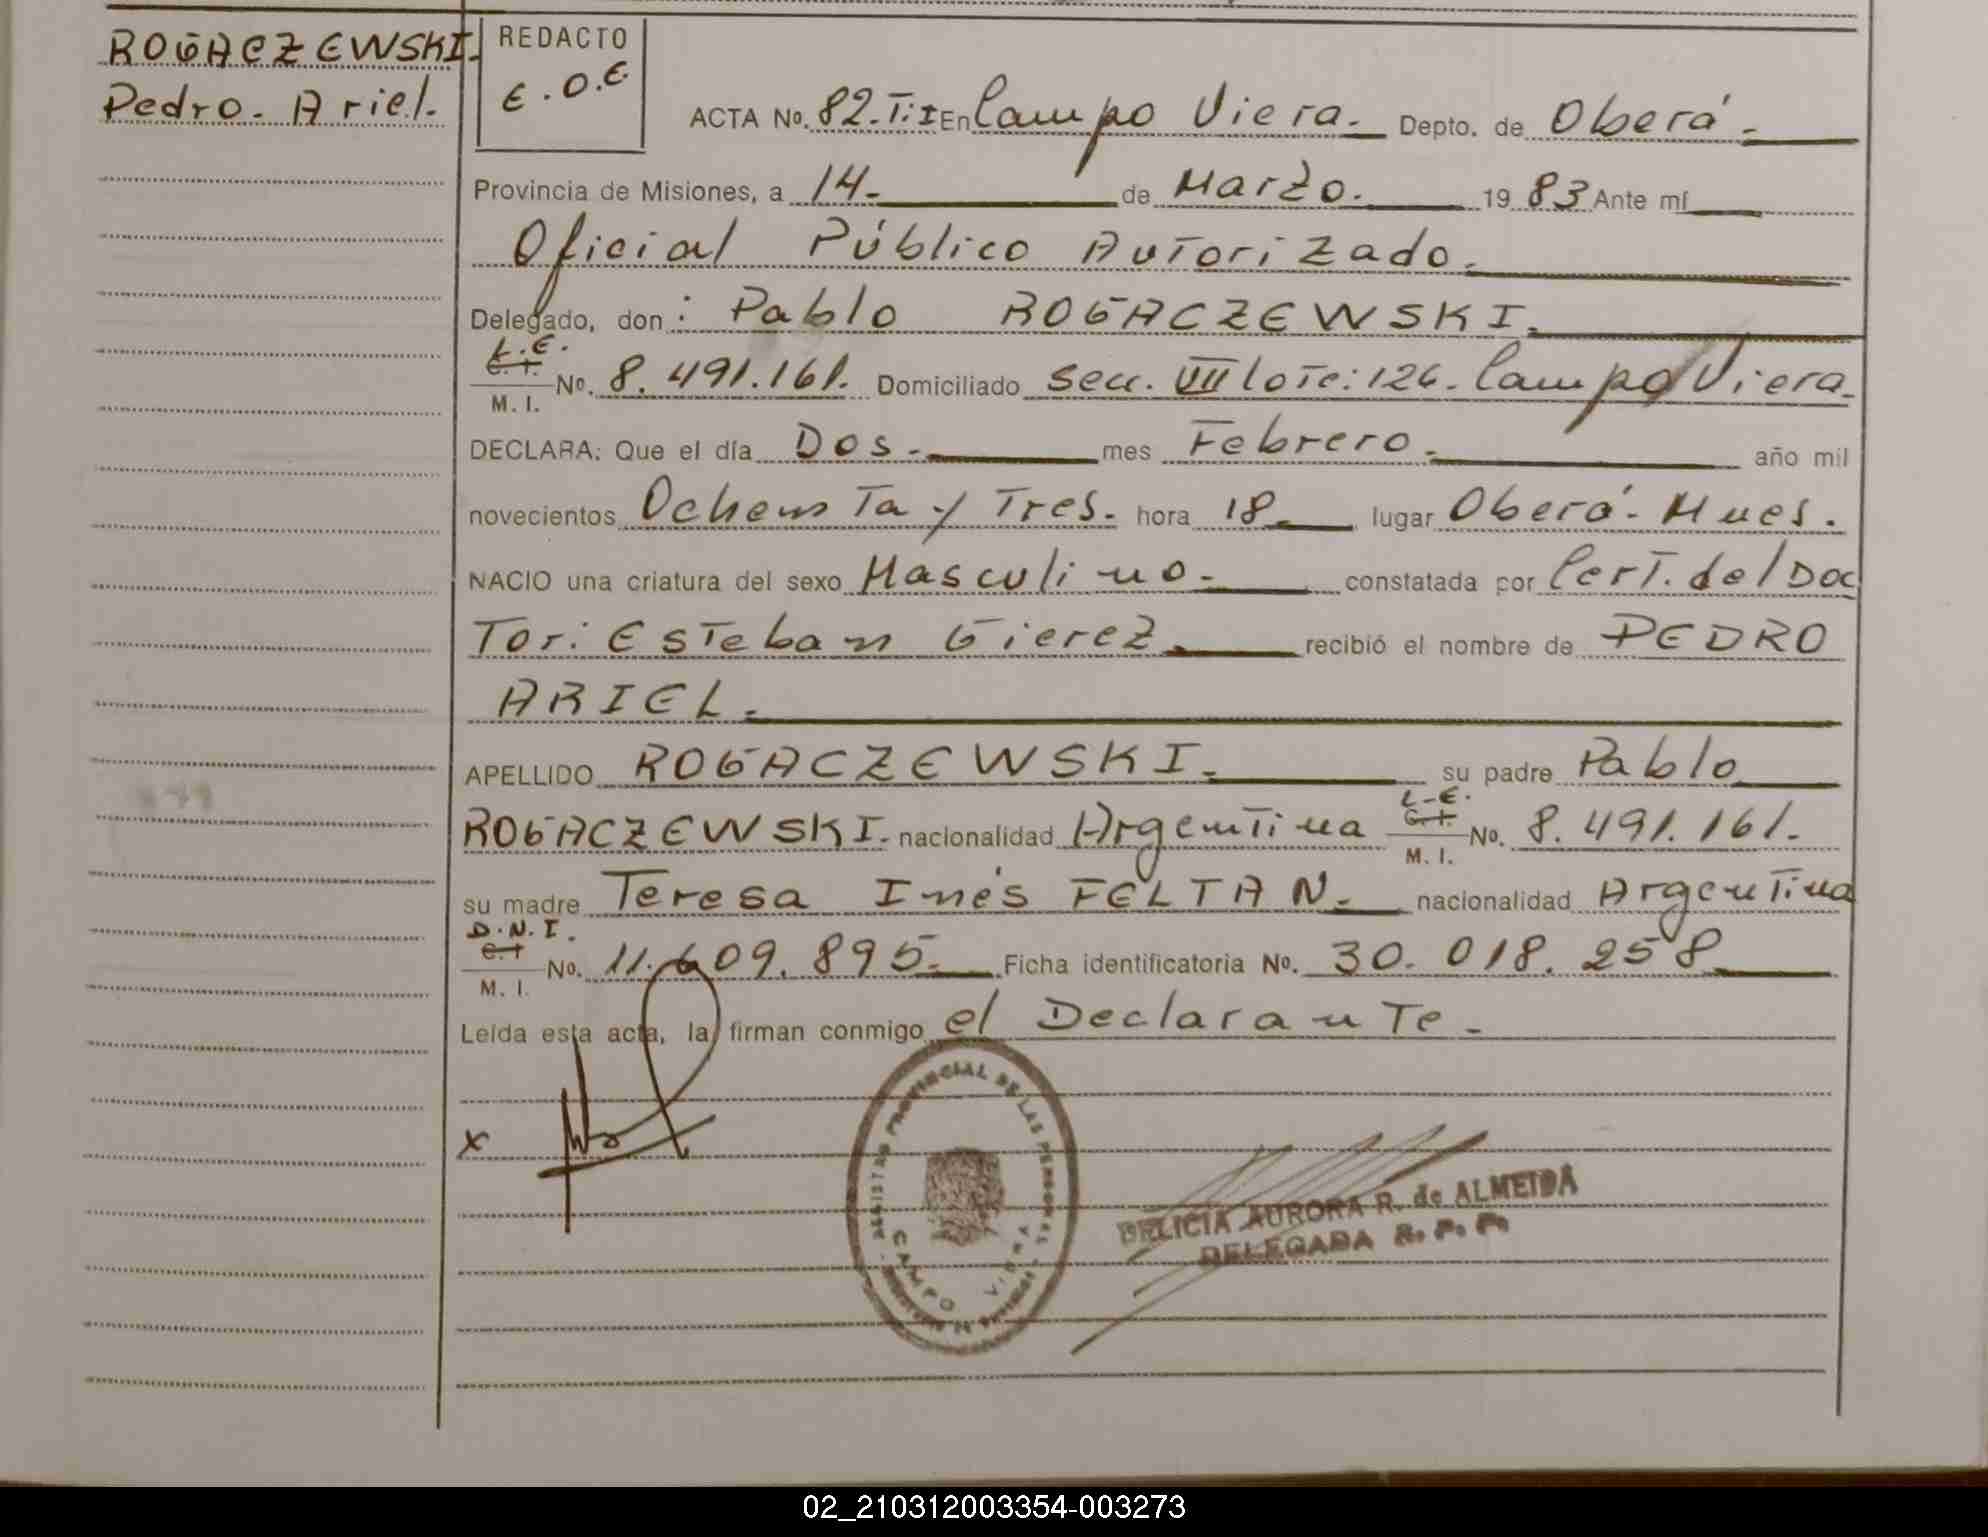 ROGACZEWSKI.
Pedro. Ariel.
REDACTO
E.O.E
ACTA No. 82.T:I En Campo Viera. Depto. de Oberá.
Provincia de Misiones, a 14. de Marzo. 19 83 Ante mí
Oficial Público Autorizado.
Delegado, don: Pablo ROGACZEWSKI.
L.E.
C.I.
M. I. No. 8.491.161. Domiciliado Secc. VII lote: 126. Campo Viera.
DECLARA: Que el día Dos. mes Febrero. año mil
novecientos Ochenta y Tres. hora 18. lugar Oberá. Mnes.
NACIO una criatura del sexo Masculino. constatada por Cert. del Doc
Tor: Esteban Gierez. recibió el nombre de PEDRO
ARIEL.
APELLIDO ROGACZEWSKI. su padre Pablo
L.E.
C.I.
ROGACZEWSKI. nacionalidad Argentina M. I. No. 8.491.161.
su madre Teresa Inés FELTAN. nacionalidad Argentina
D.N.I.
C.I
M. I. No. 11.609.895. Ficha identificatoria No. 30.018.258
Leída esta acta, la firman conmigo el Declarante.
x
REGISTRO PROVINCIAL DE LAS PERSONAS
CAMPO VIERA
DELICIA AURORA R. de ALMEIDA
DELEGADA R. P. P.
02_210312003354-003273